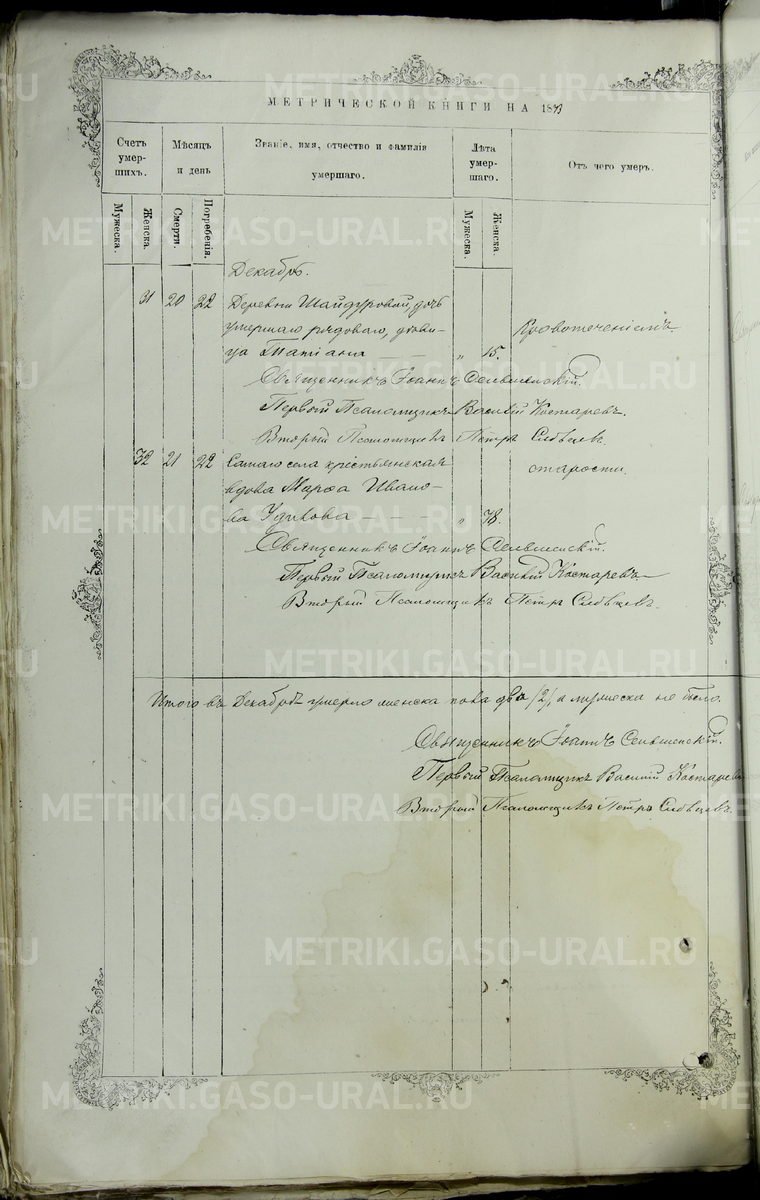 МЕТРИЧЕСКОЙ КНИГИ НА 1873
Счетъ умер- шихъ.
Мѣсяцъ и день
Званіе, имя, отчество и фамилія умершаго.
Лѣта умер- шаго.
Отъ чего умеръ.
Мужеска.
Женска.
Смерти.
Погребенія.
Мужеска.
Женска.
Декабрь.
31 20 22 Деревни Шайдуровой, дочь
умершаго рядоваго, дѣви-
ца Татіана — — „ 15. Кровотеченіемъ.
Священникъ Іоаннъ
Первый Псаломщикъ Василій Костаревъ.
Второй Псаломщикъ Петръ Словцевъ.
32 21 22 Самаго села крестьянская старости.
вдова Марѳа Ивано-
ва — — — „ 78.
Священникъ Іоаннъ
Первый Псаломщикъ Василій Костаревъ
Второй Псаломщикъ Петръ Словцевъ.
Итого въ Декабрѣ умерло женска пола два /2/, а мужеска не было.
Священникъ Іоаннъ
Первый Псаломщикъ Василій Костаревъ
Второй Псаломщикъ Петръ Словцевъ.
METRIKI.GASO-URAL.RU